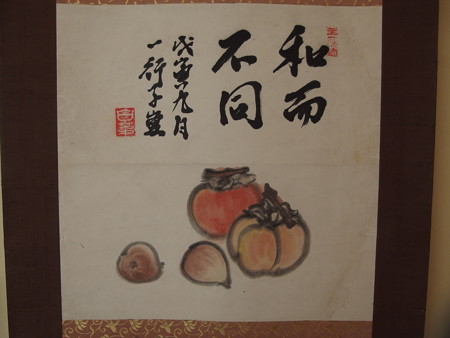 和而
不同
戊寅九月
一行子